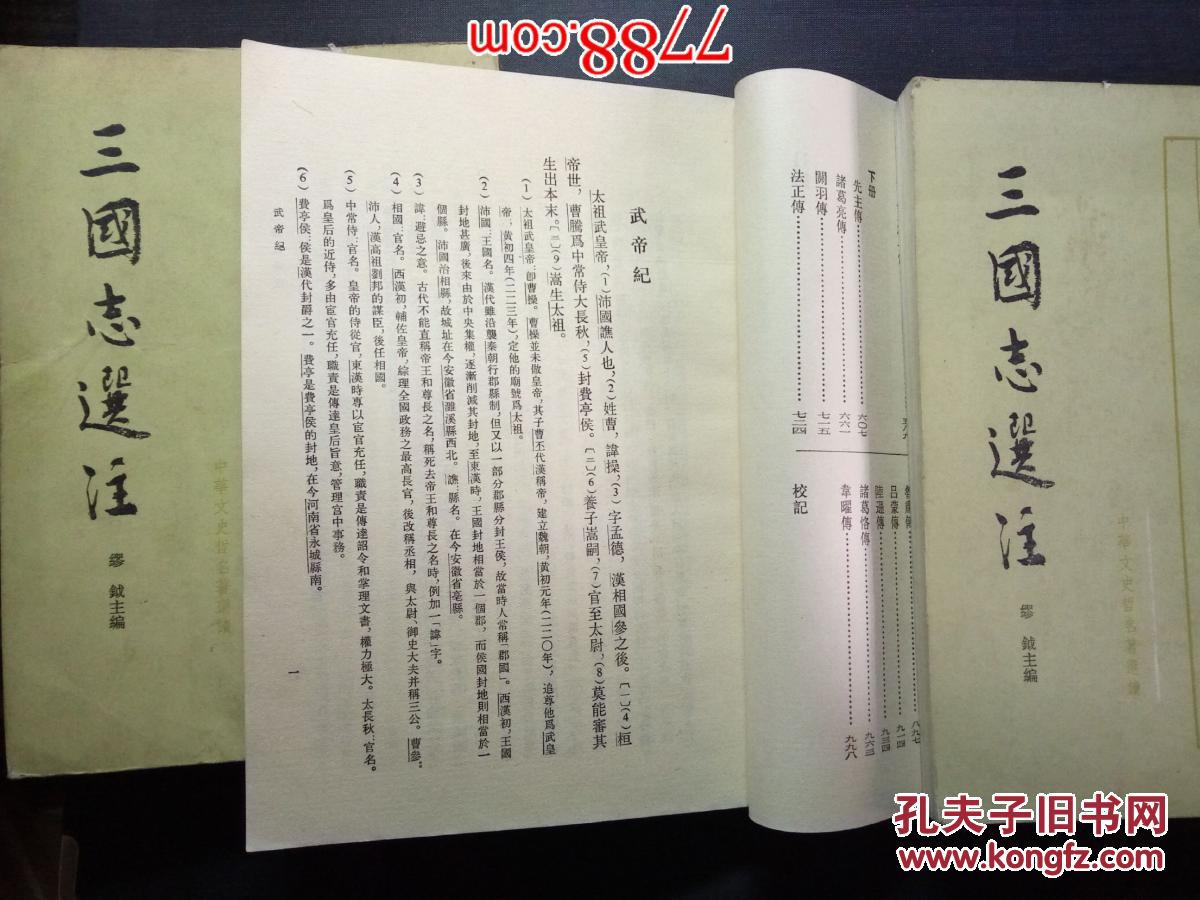 7788.com
三國志選注
繆 鉞主編
武帝紀
太祖武皇帝，(1)沛國譙人也，(2)姓曹，諱操，(3)字孟德，漢相國參之後。〔一〕(4)桓
帝世，曹騰爲中常侍大長秋，(5)封費亭侯。〔二〕(6)養子嵩嗣，(7)官至太尉，(8)莫能審其
生出本末。〔三〕(9)嵩生太祖。
(1) 太祖武皇帝：卽曹操。曹操並未做皇帝，其子曹丕代漢稱帝，建立魏朝，黃初元年(二二〇年)，追尊他爲武皇
帝；黃初四年(二二三年)，定他的廟號爲太祖。
(2) 沛國：王國名。漢代雖沿襲秦朝行郡縣制，但又以一部分郡縣分封王侯，故當時人常稱「郡國」。西漢初，王國
封地甚廣，後來由於中央集權，逐漸削減其封地，至東漢時，王國封地相當於一個郡，而侯國封地則相當於一
個縣。沛國治相縣，故城址在今安徽省濉溪縣西北。譙：縣名。在今安徽省亳縣。
(3) 諱：避忌之意。古代不能直稱帝王和尊長之名，稱死去帝王和尊長之名時，例加一「諱」字。
(4) 相國：官名。西漢初，輔佐皇帝，綜理全國政務之最高長官，後改稱丞相，與太尉、御史大夫并稱三公。曹參：
沛人，漢高祖劉邦的謀臣，後任相國。
(5) 中常侍：官名。皇帝的侍從官，東漢時專以宦官充任，職責是傳達詔令和掌理文書，權力極大。大長秋：官名。
爲皇后的近侍，多由宦官充任，職責是傳達皇后旨意，管理宮中事務。
(6) 費亭侯：侯是漢代封爵之一。費亭是費亭侯的封地，在今河南省永城縣南。
武帝紀
一
下册
先主傳……六〇七
諸葛亮傳……六六一
關羽傳……七一五
法正傳……七二四
八九七
呂蒙傳……九一四
陸遜傳……九三四
諸葛恪傳……九六三
韋曜傳……九九八
校記
三國志選注
繆 鉞主編
孔夫子旧书网
www.kongfz.com